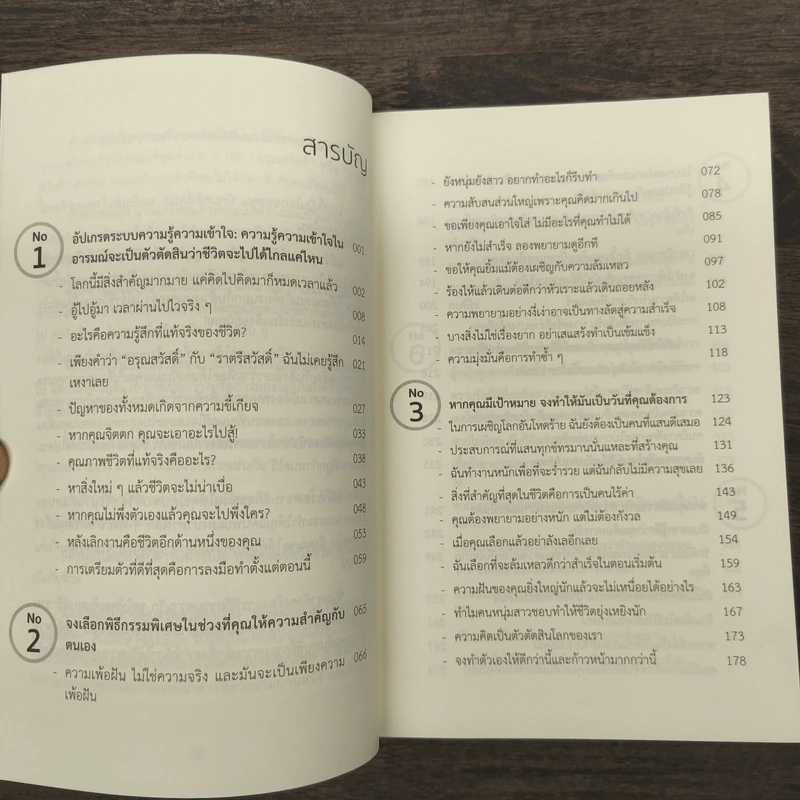 สารบัญ
No
1
อัปเกรดระบบความรู้ความเข้าใจ: ความรู้ความเข้าใจใน
อารมณ์จะเป็นตัวตัดสินว่าชีวิตจะไปได้ไกลแค่ไหน 001
- โลกนี้มีสิ่งสำคัญมากมาย แค่คิดไปคิดมาก็หมดเวลาแล้ว 002
- อู้ไปอู้มา เวลาผ่านไปไวจริง ๆ 008
- อะไรคือความรู้สึกที่แท้จริงของชีวิต? 014
- เพียงคำว่า “อรุณสวัสดิ์” กับ “ราตรีสวัสดิ์” ฉันไม่เคยรู้สึก 021
เหงาเลย
- ปัญหาของทั้งหมดเกิดจากความขี้เกียจ 027
- หากคุณจิตตก คุณจะเอาอะไรไปสู้! 033
- คุณภาพชีวิตที่แท้จริงคืออะไร? 038
- หาสิ่งใหม่ ๆ แล้วชีวิตจะไม่น่าเบื่อ 043
- หากคุณไม่พึ่งตัวเองแล้วคุณจะไปพึ่งใคร? 048
- หลังเลิกงานคือชีวิตอีกด้านหนึ่งของคุณ 053
- การเตรียมตัวที่ดีที่สุดคือการลงมือทำตั้งแต่ตอนนี้ 059
No
2
จงเลือกพิธีกรรมพิเศษในช่วงที่คุณให้ความสำคัญกับ 065
ตนเอง
- ความเพ้อฝัน ไม่ใช่ความจริง และมันจะเป็นเพียงความ 066
เพ้อฝัน
- ยังหนุ่มยังสาว อยากทำอะไรก็รีบทำ 072
- ความสับสนส่วนใหญ่เพราะคุณคิดมากเกินไป 078
- ขอเพียงคุณเอาใจใส่ ไม่มีอะไรที่คุณทำไม่ได้ 085
- หากยังไม่สำเร็จ ลองพยายามดูอีกที 091
- ขอให้คุณยิ้มแม้ต้องเผชิญกับความล้มเหลว 097
- ร้องไห้แล้วเดินต่อดีกว่าหัวเราะแล้วเดินถอยหลัง 102
- ความพยายามอย่างงี่เง่าอาจเป็นทางลัดสู่ความสำเร็จ 108
- บางสิ่งไม่ใช่เรื่องยาก อย่าเสแสร้งทำเป็นเข้มแข็ง 113
- ความมุ่งมั่นคือการทำซ้ำ ๆ 118
No
3
หากคุณมีเป้าหมาย จงทำให้มันเป็นวันที่คุณต้องการ 123
- ในการเผชิญโลกอันโหดร้าย ฉันยังต้องเป็นคนที่แสนดีเสมอ 124
- ประสบการณ์ที่แสนทุกข์ทรมานนั่นแหละที่สร้างคุณ 131
- ฉันทำงานหนักเพื่อที่จะร่ำรวย แต่ฉันกลับไม่มีความสุขเลย 136
- สิ่งที่สำคัญที่สุดในชีวิตคือการเป็นคนไร้ค่า 143
- คุณต้องพยายามอย่างหนัก แต่ไม่ต้องกังวล 149
- เมื่อคุณเลือกแล้วอย่าลังเลอีกเลย 154
- ฉันเลือกที่จะล้มเหลวดีกว่าสำเร็จในตอนเริ่มต้น 159
- ความฝันของคุณยิ่งใหญ่นักแล้วจะไม่เหนื่อยได้อย่างไร 163
- ทำไมคนหนุ่มสาวชอบทำให้ชีวิตยุ่งเหยิงนัก 167
- ความคิดเป็นตัวตัดสินโลกของเรา 173
- จงทำตัวเองให้ดีกว่านี้และก้าวหน้ามากกว่านี้ 178